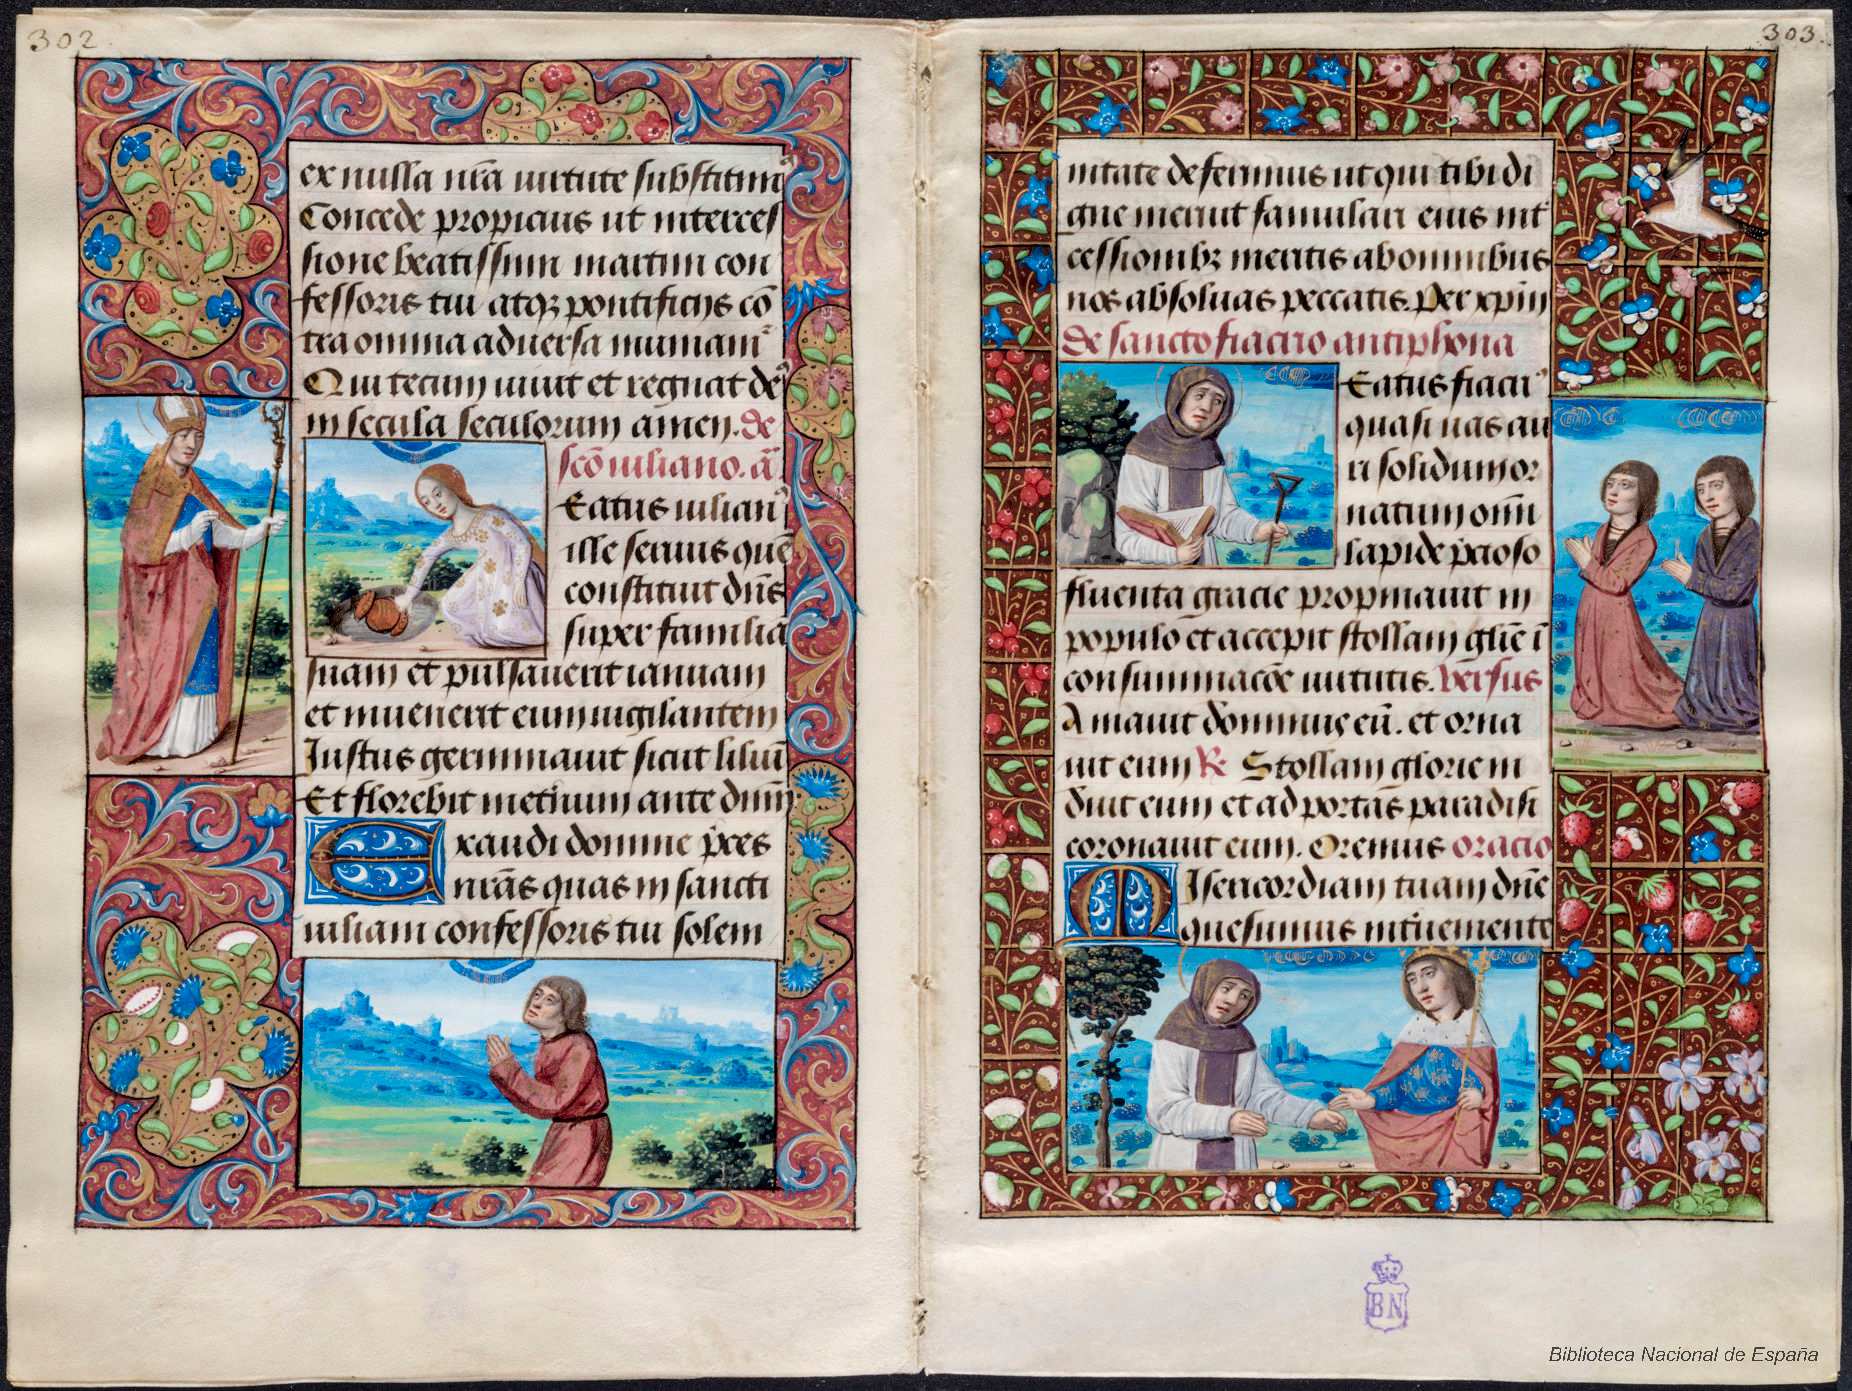 302
ex nulla nr̄a uirtute subsistim9
Concede propicius ut interces
sione beatissimi martini con
fessoris tui atqꝫ pontificis cō
tra omnia aduersa muniam᷑
Qui tecum uiuit et regnat de9
in secula seculorum amen. de
scō iuliano. ā
Eatus iulian9
ille seruus quē
constituit dn̄s
super familiā
suam et pulsauerit ianuam
et inuenerit eum uigilantem
Justus germinauit sicut liliū
Et florebit in et̄num ante dn̄m
Exaudi domine p̄ces
nr̄as quas in sancti
iuliani confessoris tui solem
303.
nitate deferimus ut qui tibi di
gne meruit famulari eius int̄
cessionibꝫ meritis ab omnibus
nos absoluas peccatis. Per xp̄m
de sancto fiacrio antiphona
Eatus fiacri9
quasi uas au
ri solidum or
natum omī
lapide p̄cioso
fluenta gracie propinauit in
populo et accepit stollam gl̄ie ī
consummacōe uirtutis. Versus
Amauit dominus eū. et orna
uit eum R. Stollam glorie in
duit eum et ad portas paradisi
coronauit eum. Oremus oracio
Misericordiam tuam dn̄e
quesumus intuemente
BN
Biblioteca Nacional de España